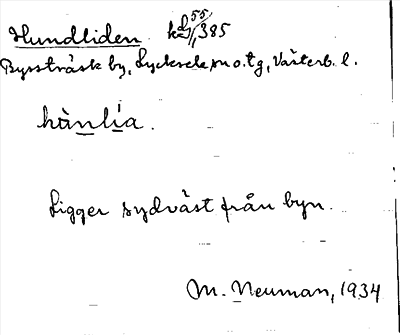 Hundliden
Byssträsk by, Lycksele sn o. tg, Västerb. l.
hànlía.
Ligger sydväst från byn.
M. Neuman, 1934